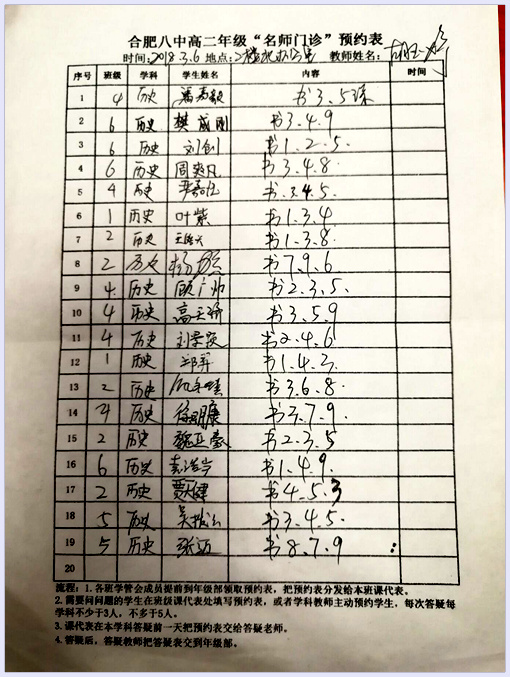 合肥八中高二年级“名师门诊”预约表
时间:2018.3.6 地点: 教师姓名:
序号 班级 学科 学生姓名 内容 时间
1 4 历史 书3.5课
2 6 历史 樊成刚 书3.4.9
3 6 历史 刘创 书1.2.5.
4 6 历史 周奕凡 书3.4.8
5 4 历史 书.3.4.5.
6 1 历史 叶紫 书1.3.4
7 2 历史 书1.3.8.
8 2 历史 书7.9.6
9 4 历史 顾广帅 书2.3.5.
10 4 历史 书3.5.9
11 4 历史 刘景奕 书2.4.6
12 1 历史 书1.4.3.
13 2 历史 书3.6.8.
14 4 历史 徐明康 书3.7.9
15 2 历史 魏亚豪 书2.3.5
16 6 历史 书1.4.9.
17 2 历史 贾健 书4.5.3
18 5 历史 书3.4.5.
19 5 历史 张迈 书8.7.9
20
流程:1.各班学管会成员提前到年级部领取预约表，把预约表分发给本班课代表。
2.需要问问题的学生在班级课代表处填写预约表，或者学科教师主动预约学生，每次答疑每
学科不少于3人，不多于5人。
3.课代表在本学科答疑前一天把预约表交给答疑老师。
4.答疑后，答疑教师把答疑表交到年级部。